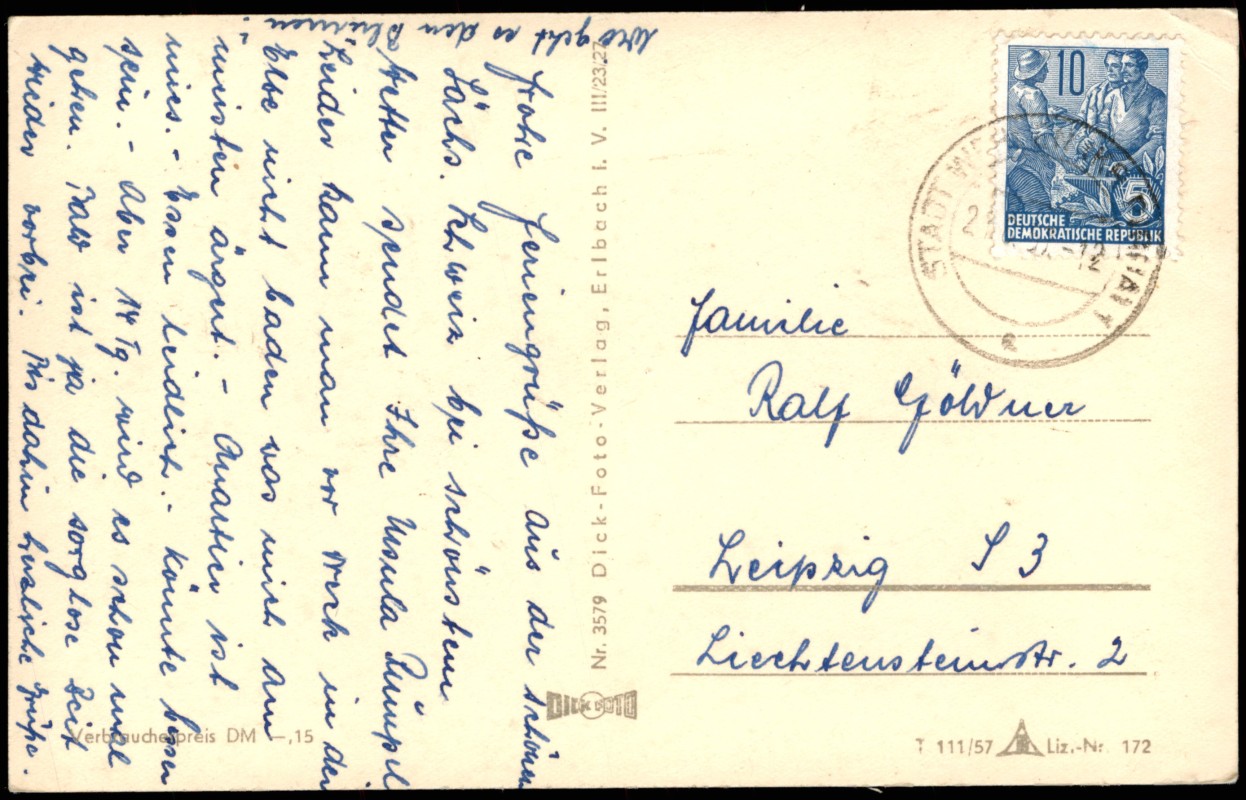 Frohe Feriengrüße aus der schönen
Sächs. Schweiz bei schönstem
Wetter sendet Ihre Ursula Rümpel
Leider kann man vor Dreck in der
Elbe nicht baden was mich am
meisten ärgert. - Quartier ist
mies. - Essen leidlich. - könnte besser
sein. - Aber 14 Tg. wird es schon mal
gehen. Bald ist ja die sorglose Zeit
wieder vorbei. Bis dahin herzliche Grüße.
Wie geht es den Blumen
?
Nr. 3579 Dick-Foto-Verlag, Erlbach i. V. III/23/27
DICK FOTO
Verbraucherpreis DM -,15
10
5
DEUTSCHE
DEMOKRATISCHE REPUBLIK
STADT
-12
e
Familie
Ralf Göldner
Leipzig S 3
Liechtensteinstr. 2
T 111/57 Liz.-Nr. 172